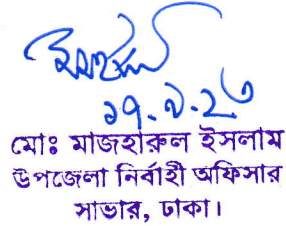 ১৭.৯.২৩
মোঃ মাজহারুল ইসলাম
উপজেলা নির্বাহী অফিসার
সাভার, ঢাকা।